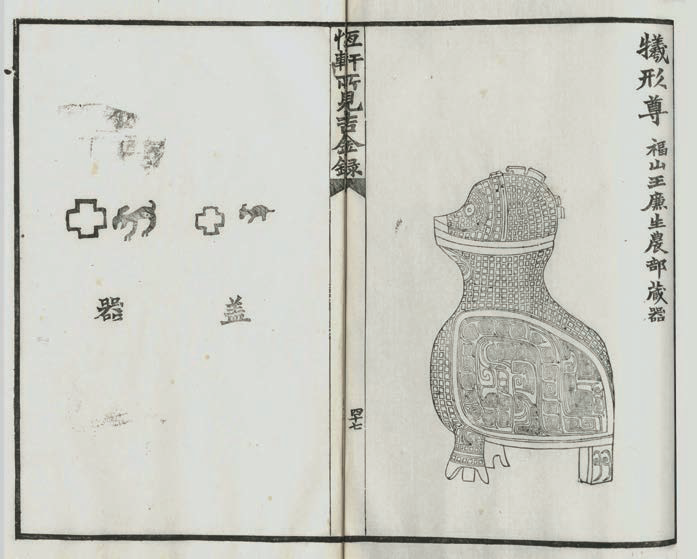 犧形尊 福山王廉生農部蔵器
恆軒所見吉金録
四十七
盖
器